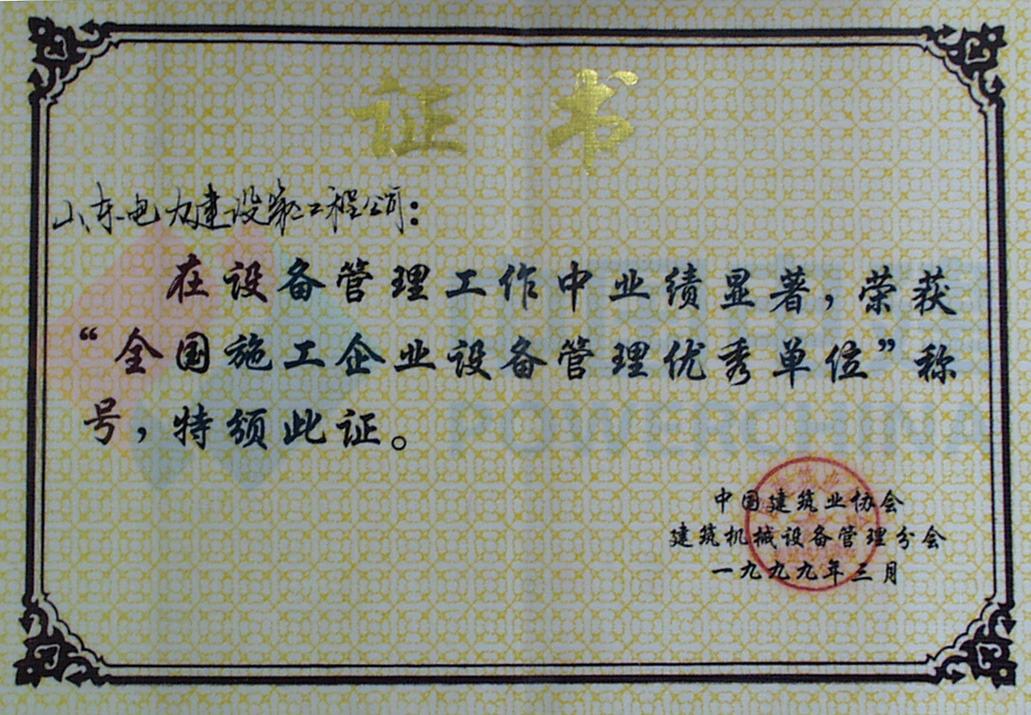 证书
山东电力建设第二工程公司：
在设备管理工作中业绩显著，荣获
“全国施工企业设备管理优秀单位”称
号，特颁此证。
中国建筑业协会
建筑机械设备管理分会
一九九九年三月
POWERCHINA